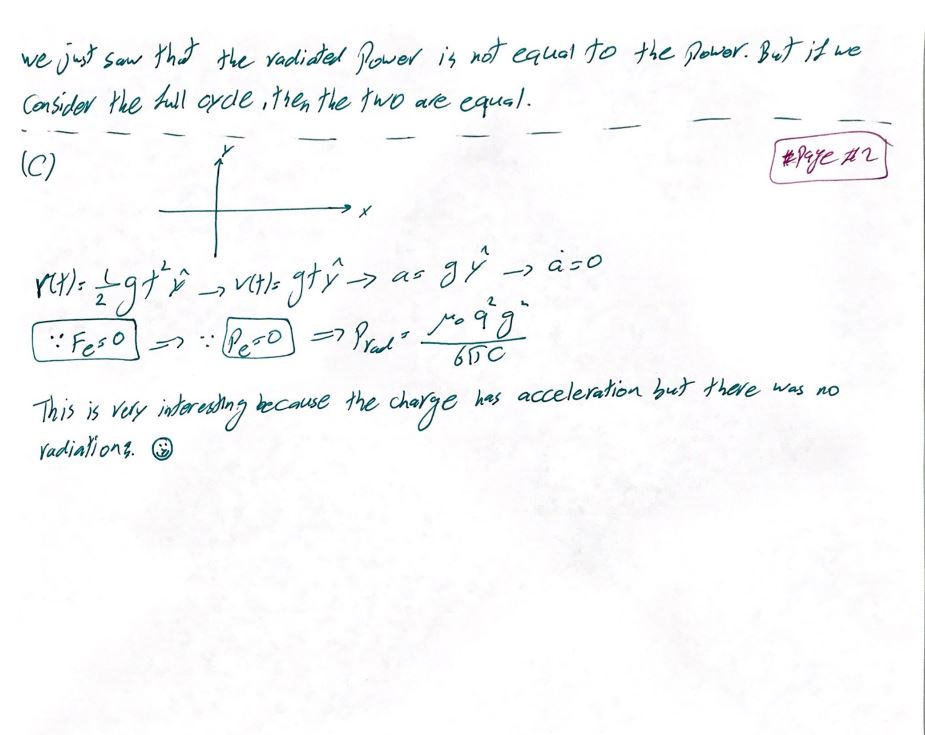 we just saw that the radiated Power is not equal to the Power. But if we
Consider the full cycle, then the two are equal.
(C)
#Page #2
y
x
r(t)= 1/2 gt² ŷ → v(t)= gt ŷ → a= g ŷ → ȧ=0
∵ Fe=0 ⇒ ∵ Pe=0 ⇒ Prad = μ₀ q² g² / 6πC
This is very interesting because the charge has acceleration but there was no
radiations. ☺